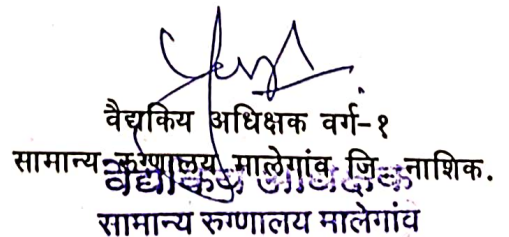 वैद्यकिय अधिक्षक वर्ग-१
सामान्य रुग्णालय मालेगांव जि. नाशिक.
वैद्यकिय अधिक्षक
सामान्य रुग्णालय मालेगांव